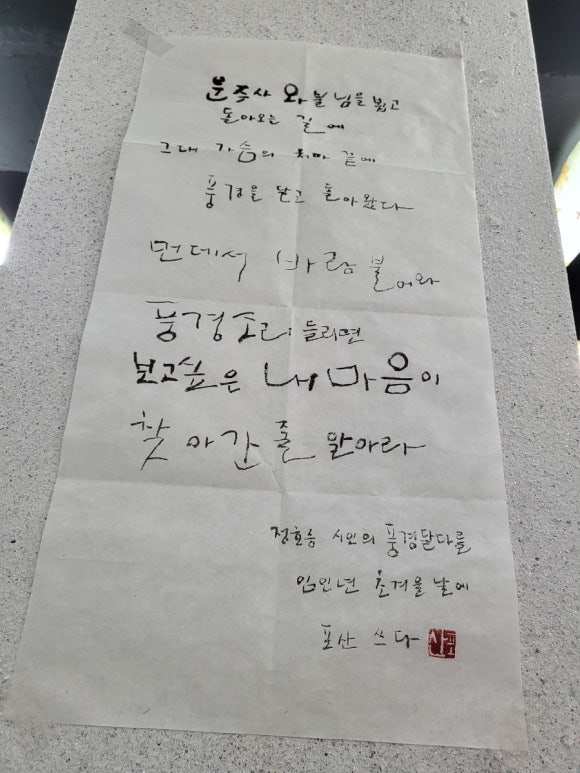 운주사 와불님을 뵙고
돌아오는 길에
그대 가슴의 처마 끝에
풍경을 달고 돌아왔다
먼데서 바람 불어와
풍경소리 들리면
보고싶은 내 마음이
찾아간 줄 알아라
정호승 시인의 풍경달다를
임인년 초겨울 날에
포산 쓰다
포산